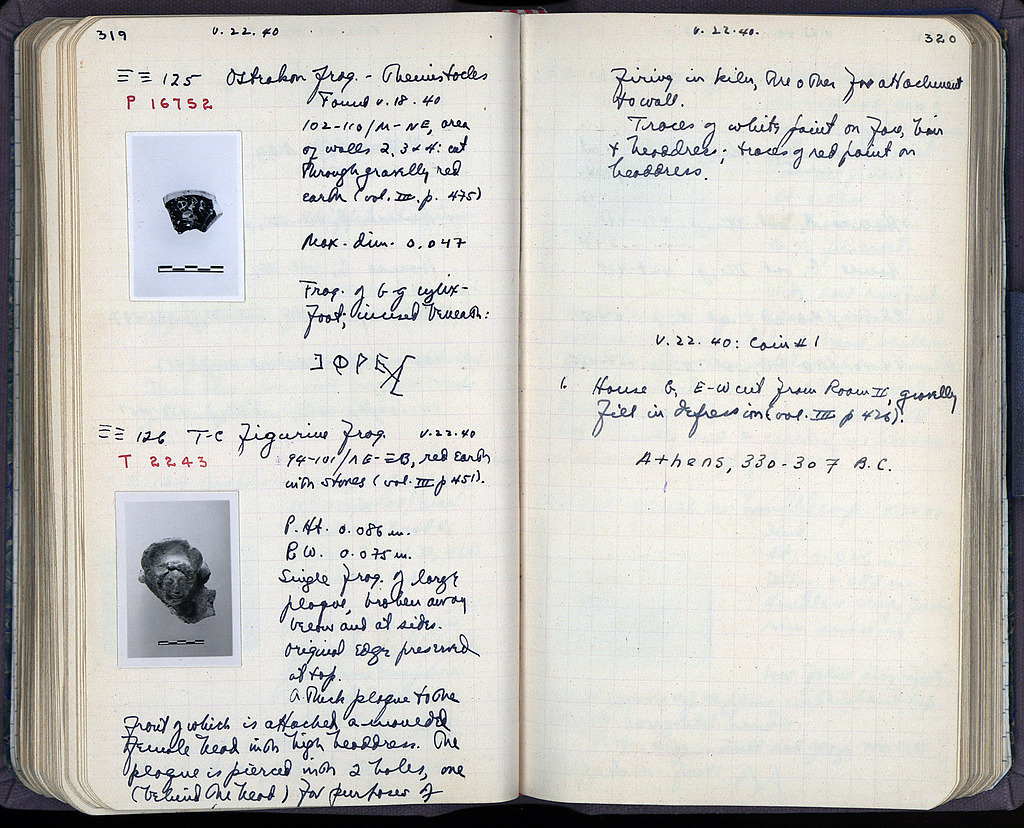 319
V.22.40
ΞΞ 125 Ostrakon frag. - Themistocles
P 16752
Found V.18.40
102-110/Μ-ΝΕ, area
of walls 2, 3 & 4: cut
through gravelly red
earth (vol. III, p. 475)
Max. dim. 0.047
Frag. of b-g cylix-
foot; incised beneath:
ΞΞ 126 T-C Figurine frag. V.22.40
T 2243
red earth
with stones (vol. III p 451).
P.Ht. 0.086 m.
P.W. 0.075 m.
Single frag. of large
plaque, broken away
below and at sides.
Original edge preserved
at top.
A thick plaque to the
front of which is attached a moulded
female head with high headdress. The
plaque is pierced with 2 holes, one
(behind the head) for purposes of
V.22.40.
320
firing in kiln, the other for attachment
to wall.
Traces of white paint on face, hair
& headdress; traces of red paint on
headdress.
V.22.40: Coin #1
1. House G, E-W cut from Room II, gravelly
fill in depression (vol. III p 426).
Athens, 330-307 B.C.